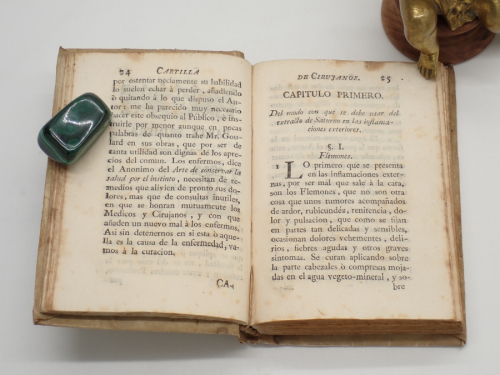 24 CARTILLA
por ostentar neciamente su habilidad
lo suelen echar á perder, añadiendo
ó quitando á lo que dispuso el Au-
tor: me ha parecido muy necesario
hacer este obsequio al Público, é ins-
truirle por menor aunque en pocas
palabras de quanto trahe Mr. Gou-
lard en sus obras, que por ser de
tanta utilidad son dignas de los apre-
cios del comun. Los enfermos, dice
el Anonimo del Arte de conservar la
salud por el instinto, necesitan de re-
medios que alivien de pronto sus do-
lores, mas que de consultas inutiles,
en que se honran mutuamente los
Medicos y Cirujanos, y con que
añaden un nuevo mal á los enfermos.
Asi sin detenernos en si esta ó aque-
lla es la causa de la enfermedad, va-
mos á la curacion.
CA-
DE CIRUJANOS. 25
CAPITULO PRIMERO.
Del modo con que se debe usar del
extracto de Saturno en las inflama-
ciones exteriores.
§. I.
Flemones.
1 LO primero que se presenta
en las inflamaciones exter-
nas, por ser mal que sale á la cara,
son los Flemones, que no son otra
cosa que unos tumores acompañados
de ardor, rubicundéz, renitencia, do-
lor y pulsacion, que como se fijan
en partes tan delicadas y sensibles,
ocasionan dolores vehementes, deli-
rios, fiebres agudas y otros graves
sintomas. Se curan aplicando sobre
la parte cabezales ò compresas moja-
das en el agua vegeto-mineral, y so-
bre